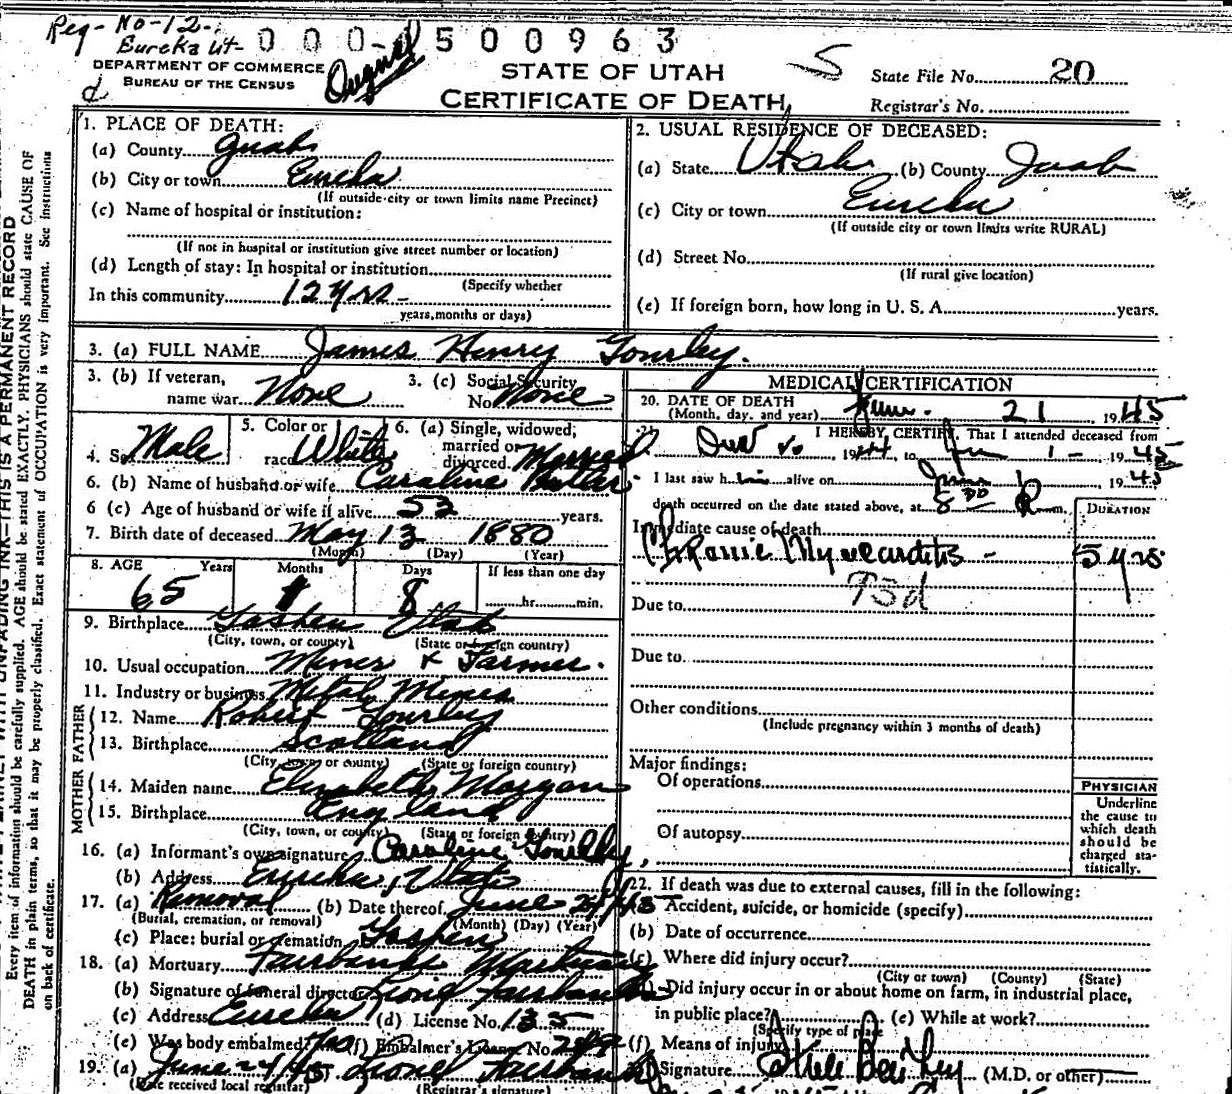 Reg- No-12-
Eureka Ut- 000-500963
DEPARTMENT OF COMMERCE
BUREAU OF THE CENSUS
STATE OF UTAH
CERTIFICATE OF DEATH
State File No. 20
Registrar's No.
Every item of information should be carefully supplied. AGE should be stated EXACTLY. PHYSICIANS should state CAUSE OF
DEATH in plain terms, so that it may be properly classified. Exact statement of OCCUPATION is very important. See instructions
on back of certificate.
1. PLACE OF DEATH:
(a) County Juab
(b) City or town Eureka
(If outside city or town limits name Precinct)
(c) Name of hospital or institution:
(If not in hospital or institution give street number or location)
(d) Length of stay: In hospital or institution
(Specify whether
In this community 12 yrs -
years, months or days)
2. USUAL RESIDENCE OF DECEASED:
(a) State Utah (b) County Juab
(c) City or town Eureka
(If outside city or town limits write RURAL)
(d) Street No.
(If rural give location)
(e) If foreign born, how long in U. S. A. years.
3. (a) FULL NAME James Henry Gourley.
3. (b) If veteran, name war None
3. (c) Social Security No. None
4. Sex Male
5. Color or race White
6. (a) Single, widowed, married or divorced. Married
6. (b) Name of husband or wife Caroline Butler
6 (c) Age of husband or wife if alive 53 years.
7. Birth date of deceased May 13 1880
(Month) (Day) (Year)
8. AGE Years Months Days If less than one day
65 1 8 hr. min.
9. Birthplace Goshen Utah
(City, town, or county) (State or foreign country)
10. Usual occupation Miner & Farmer.
11. Industry or business Metal Mines
FATHER
12. Name Robert Gourley
13. Birthplace Scotland
(City, town or county) (State or foreign country)
MOTHER
14. Maiden name Elizabeth Morgan
15. Birthplace England
(City, town, or county) (State or foreign country)
16. (a) Informant's own signature Caroline Gourley
(b) Address Eureka, Utah
17. (a) Removal (b) Date thereof June 24/45
(Burial, cremation, or removal) (Month) (Day) (Year)
(c) Place: burial or cremation Goshen
18. (a) Mortuary Fairbanks Mortuary
(b) Signature of funeral director Lionel Fairbanks
(c) Address Eureka (d) License No. 135
(e) Was body embalmed? Yes (f) Embalmer's License No.
19. (a) June 24/45 Lionel Fairbanks
(Date received local registrar) (Registrar's signature)
MEDICAL CERTIFICATION
20. DATE OF DEATH
(Month, day, and year) June. 21 1945
21. I HEREBY CERTIFY, That I attended deceased from
1944, to 1 - 1945
I last saw him alive on 1945
death occurred on the date stated above, at 8 30 P m.
DURATION
Immediate cause of death
Chronic Myocarditis - 5 yrs
93d
Due to
Due to
Other conditions
(Include pregnancy within 3 months of death)
Major findings:
Of operations
Of autopsy
PHYSICIAN
Underline
the cause to
which death
should be
charged sta-
tistically.
22. If death was due to external causes, fill in the following:
Accident, suicide, or homicide (specify)
(b) Date of occurrence
(c) Where did injury occur?
(City or town) (County) (State)
Did injury occur in or about home on farm, in industrial place,
in public place? (e) While at work?
(Specify type of place
(f) Means of injury
Signature Steele Bailey (M.D. or other)